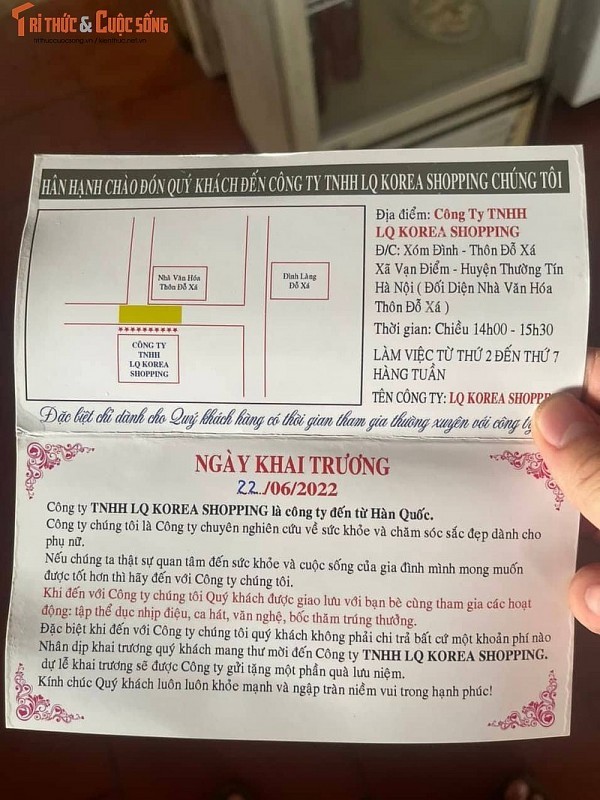 TRI THỨC & CUỘC SỐNG
HÂN HẠNH CHÀO ĐÓN QUÝ KHÁCH ĐẾN CÔNG TY TNHH LQ KOREA SHOPPING CHÚNG TÔI
Nhà Văn Hóa
Thôn Đỗ Xá
Đình Làng
Đỗ Xá
**********
CÔNG TY
TNHH
LQ KOREA
SHOPPING
Địa điểm: Công Ty TNHH
LQ KOREA SHOPPING
Đ/C: Xóm Đình - Thôn Đỗ Xá
Xã Vạn Điểm - Huyện Thường Tín
Hà Nội ( Đối Diện Nhà Văn Hóa
Thôn Đỗ Xá )
Thời gian: Chiều 14h00 - 15h30
LÀM VIỆC TỪ THỨ 2 ĐẾN THỨ 7
HÀNG TUẦN
TÊN CÔNG TY: LQ KOREA SHOPP
Đặc biệt chỉ dành cho Quý khách hàng có thời gian tham gia thường xuyên với công ty
NGÀY KHAI TRƯƠNG
22../06/2022
Công ty TNHH LQ KOREA SHOPPING là công ty đến từ Hàn Quốc.
Công ty chúng tôi là Công ty chuyên nghiên cứu về sức khỏe và chăm sóc sắc đẹp dành cho
phụ nữ.
Nếu chúng ta thật sự quan tâm đến sức khỏe và cuộc sống của gia đình mình mong muốn
được tốt hơn thì hãy đến với Công ty chúng tôi.
Khi đến với Công ty chúng tôi Quý khách được giao lưu với bạn bè cùng tham gia các hoạt
động: tập thể dục nhịp điệu, ca hát, văn nghệ, bốc thăm trúng thưởng.
Đặc biệt khi đến với Công ty chúng tôi quý khách không phải chi trả bất cứ một khoản phí nào
Nhân dịp khai trương quý khách mang thư mời đến Công ty TNHH LQ KOREA SHOPPING.
dự lễ khai trương sẽ được Công ty gửi tặng một phần quà lưu niệm.
Kính chúc Quý khách luôn luôn khỏe mạnh và ngập tràn niềm vui trong hạnh phúc!